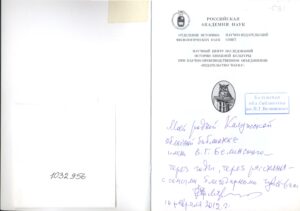 РОССИЙСКАЯ
АКАДЕМИЯ НАУК
ОТДЕЛЕНИЕ ИСТОРИКО-
ФИЛОЛОГИЧЕСКИХ НАУК
НАУЧНО-ИЗДАТЕЛЬСКИЙ
СОВЕТ
НАУЧНЫЙ ЦЕНТР ИССЛЕДОВАНИЙ
ИСТОРИИ КНИЖНОЙ КУЛЬТУРЫ
ПРИ НАУЧНО-ПРОИЗВОДСТВЕННОМ ОБЪЕДИНЕНИИ
«ИЗДАТЕЛЬСТВО "НАУКА"»
Калужская
обл. библиотека
им. В.Г. Белинского
Моей родной Калужской
областной библиотеке
имени В.Г. Белинского
через годы, через расстояния
с самым благодарным чувством
2012 г.
1032956